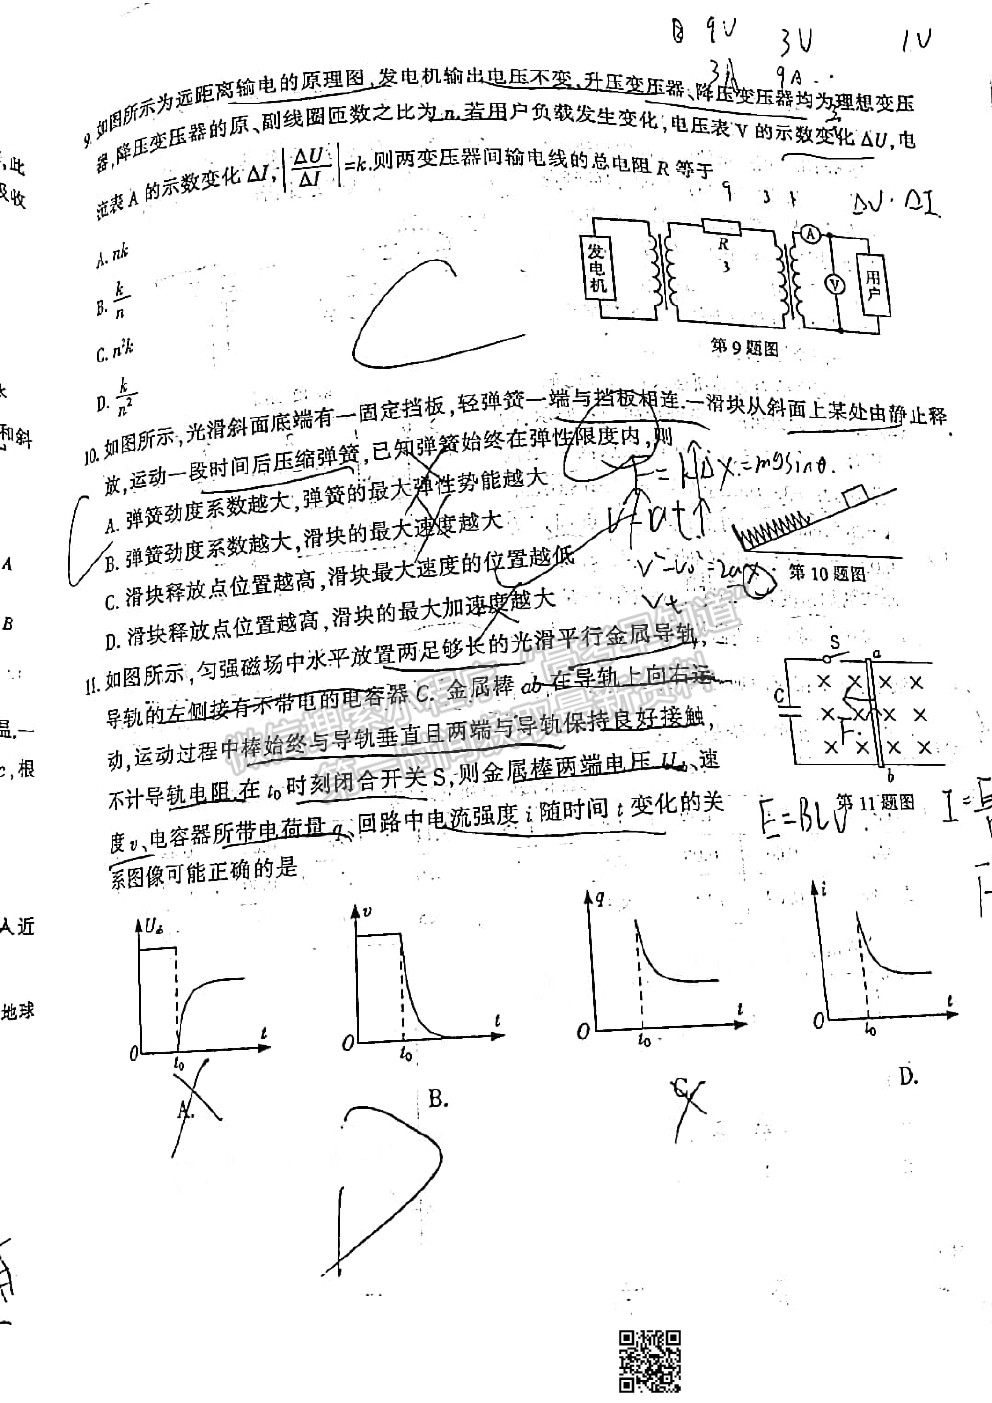 自 9V 3V 1V
3A 9A
9. 如图所示为远距离输电的原理图,发电机输出电压不变,升压变压器、降压变压器均为理想变压
器,降压变压器的原、副线圈匝数之比为 n.若用户负载发生变化,电压表 V 的示数变化 ΔU,电
流表 A 的示数变化 ΔI,|ΔU/ΔI|=k.则两变压器间输电线的总电阻 R 等于
9 3 1 ΔU·ΔI
A. nk
B. k/n
C. n²k
D. k/n²
发电机
R
3
A
V
用户
第9题图
C
10. 如图所示,光滑斜面底端有一固定挡板,轻弹簧一端与挡板相连.一滑块从斜面上某处由静止释
放,运动一段时间后压缩弹簧,已知弹簧始终在弹性限度内,则
A. 弹簧劲度系数越大,弹簧的最大弹性势能越大
B. 弹簧劲度系数越大,滑块的最大速度越大
C. 滑块释放点位置越高,滑块最大速度的位置越低
D. 滑块释放点位置越高,滑块的最大加速度越大
C
F=kΔx=mgsinθ.
v=at
v²-v₀²=2ax
vt
第10题图
11. 如图所示,匀强磁场中水平放置两足够长的光滑平行金属导轨,
导轨的左侧接有不带电的电容器 C. 金属棒 ab 在导轨上向右运
动,运动过程中棒始终与导轨垂直且两端与导轨保持良好接触,
不计导轨电阻.在 t₀ 时刻闭合开关 S,则金属棒两端电压 Uab、速
度 v、电容器所带电荷量 q、回路中电流强度 i 随时间 t 变化的关
系图像可能正确的是
S
a
C
F
b
第11题图
E=BLV
I=
Uab
O
t₀
t
A.
v
O
t₀
t
B.
q
O
t₀
t
C.
i
O
t₀
t
D.
D
,此
吸收
和斜
A
B
温.一
c,根
人近
地球